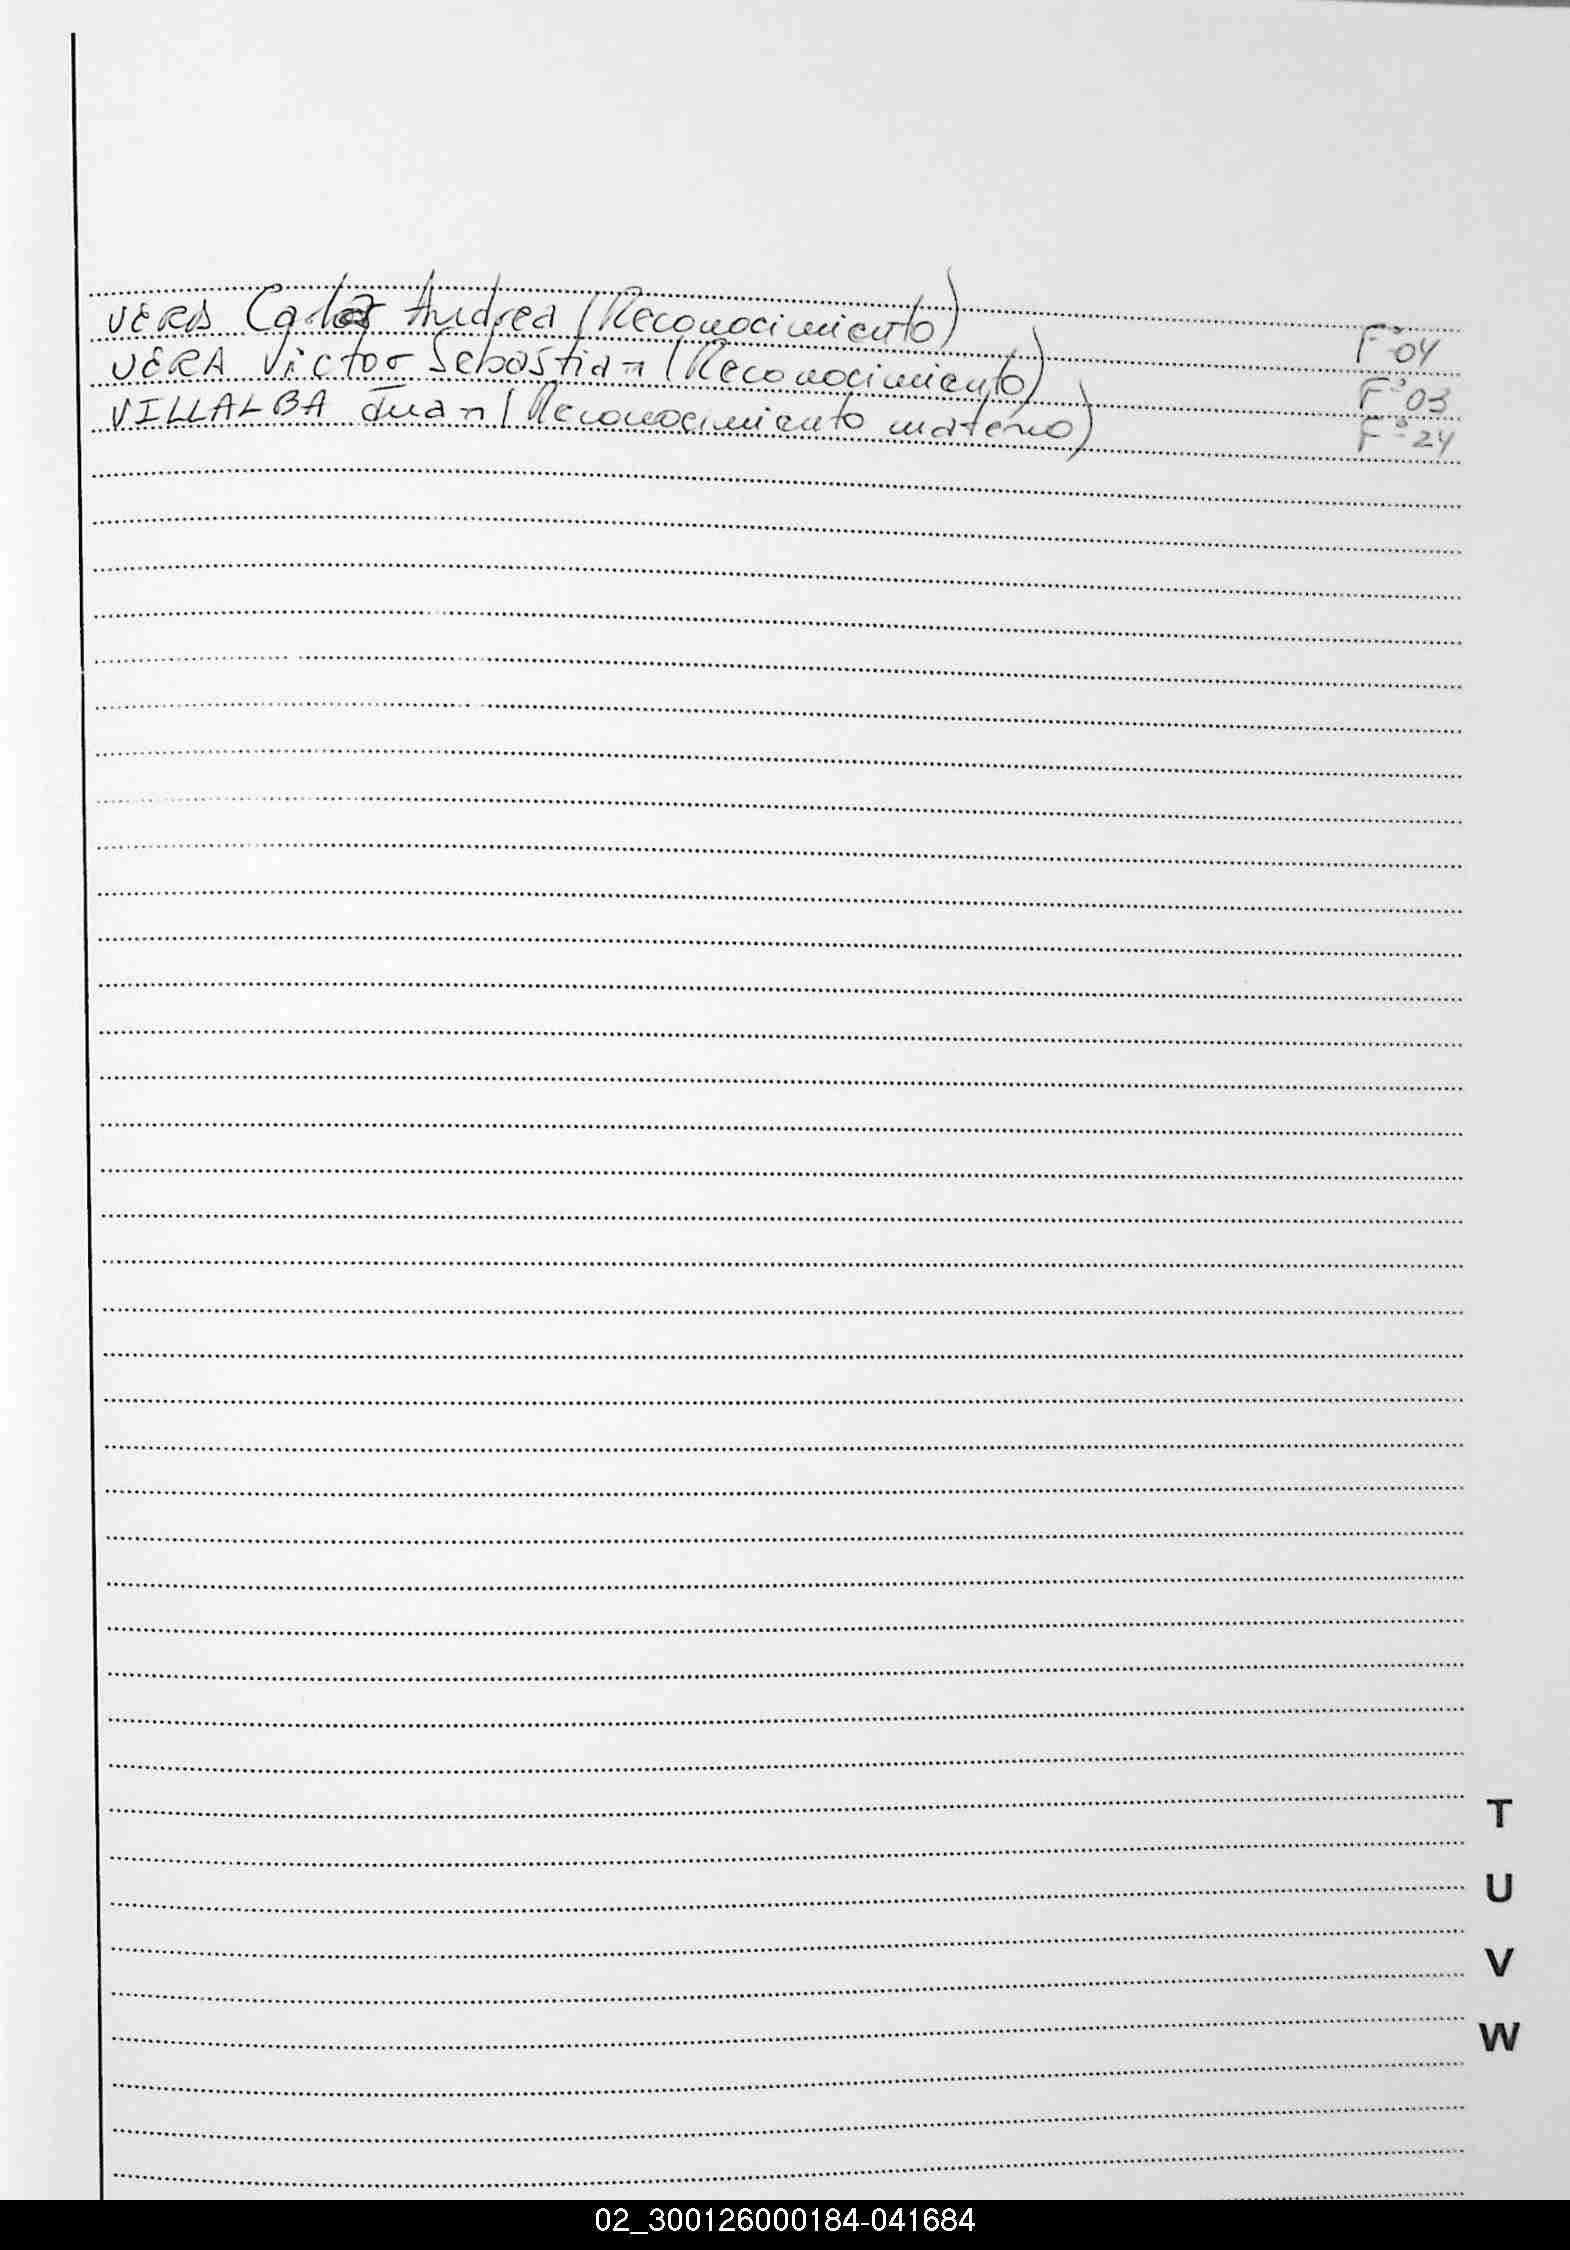 VERA Carla Andrea (Reconocimiento) Fº04
VERA Victor Sebastian (Reconocimiento) Fº03
VILLALBA Juan (Reconocimiento materno) Fº24
T
U
V
W
02_300126000184-041684